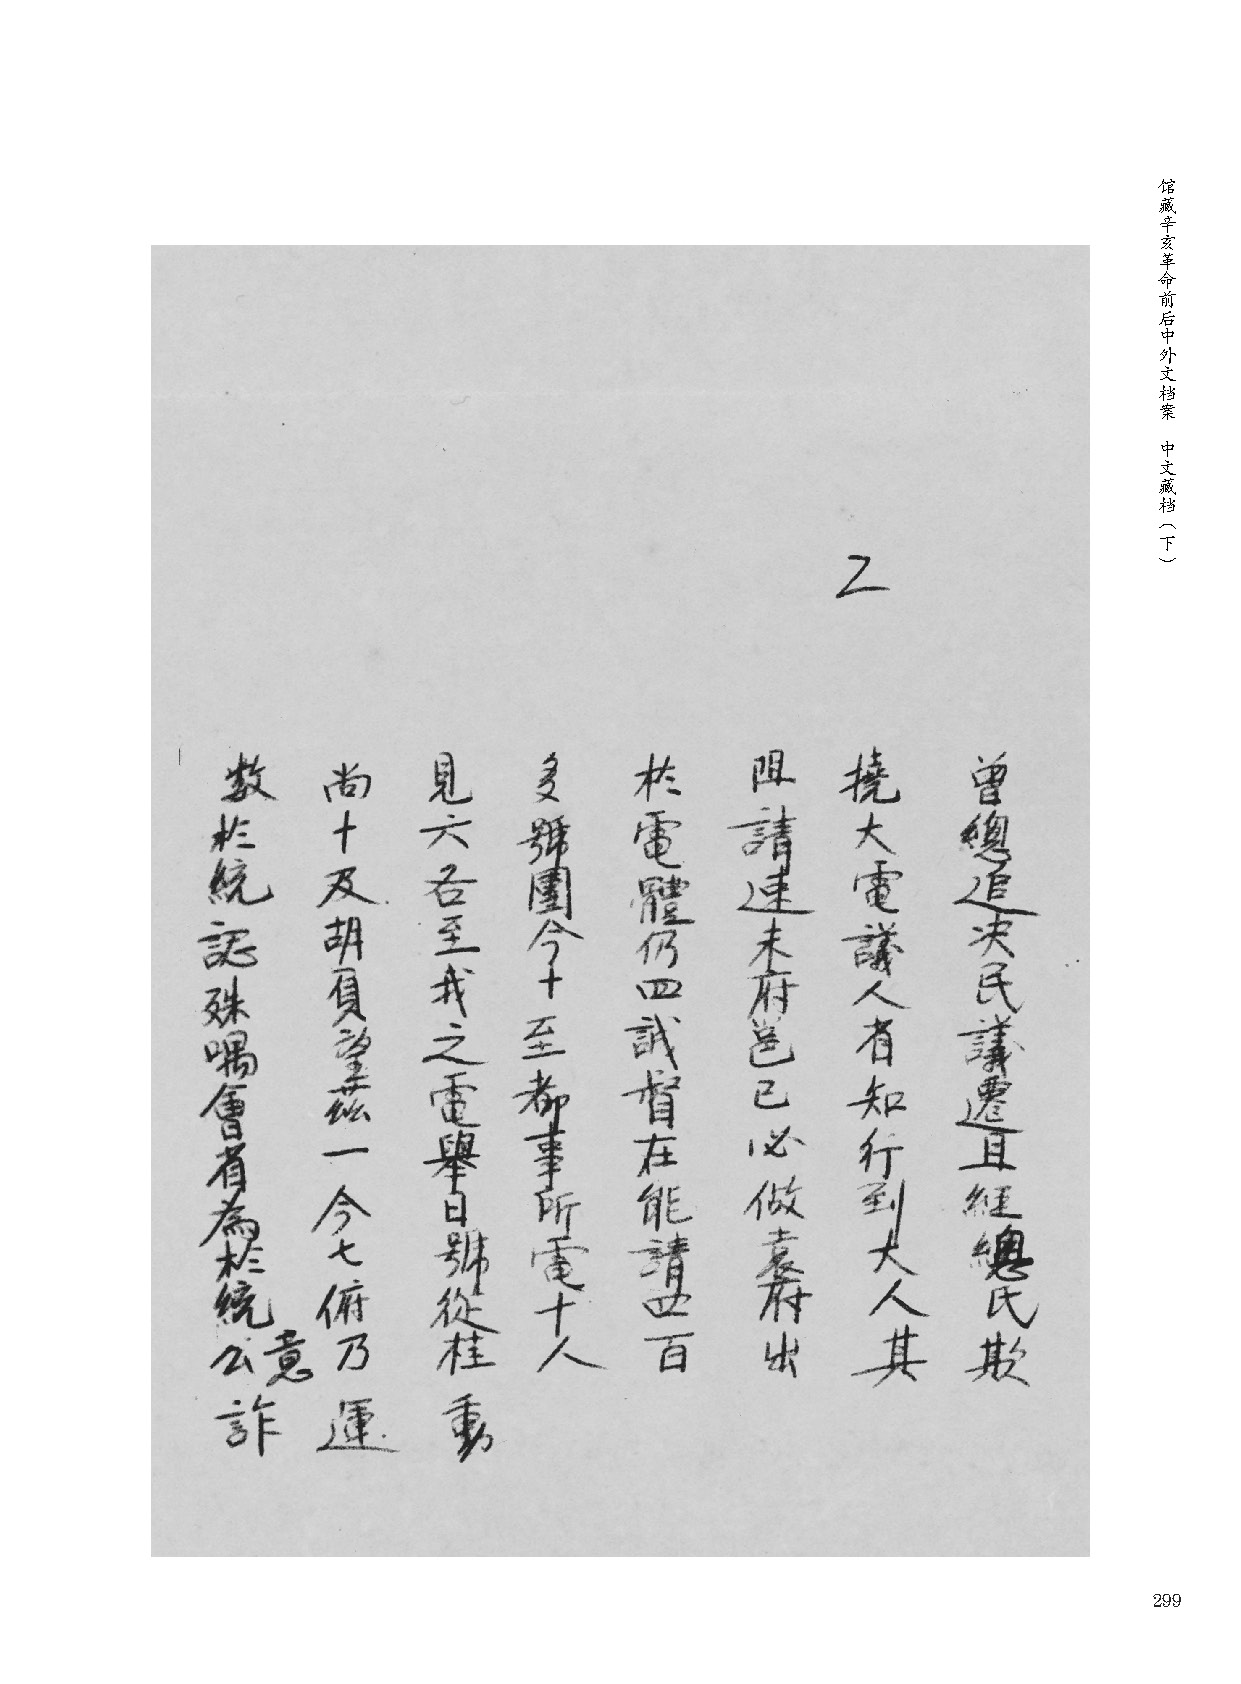 馆藏辛亥革命前后中外文档案 中文藏档（下）
2
曾總追决民議遷且經總民欺
撓大電議人者知行到大人其
阻請速未府邕已必做袁府出
於電體仍四誠督在能請四百
多號團今十至都事所電十人
見六各至我之電舉日號從桂動
尚十及胡負望茲一今七俯乃運
數於統認殊喁會省為於統公意詐
299